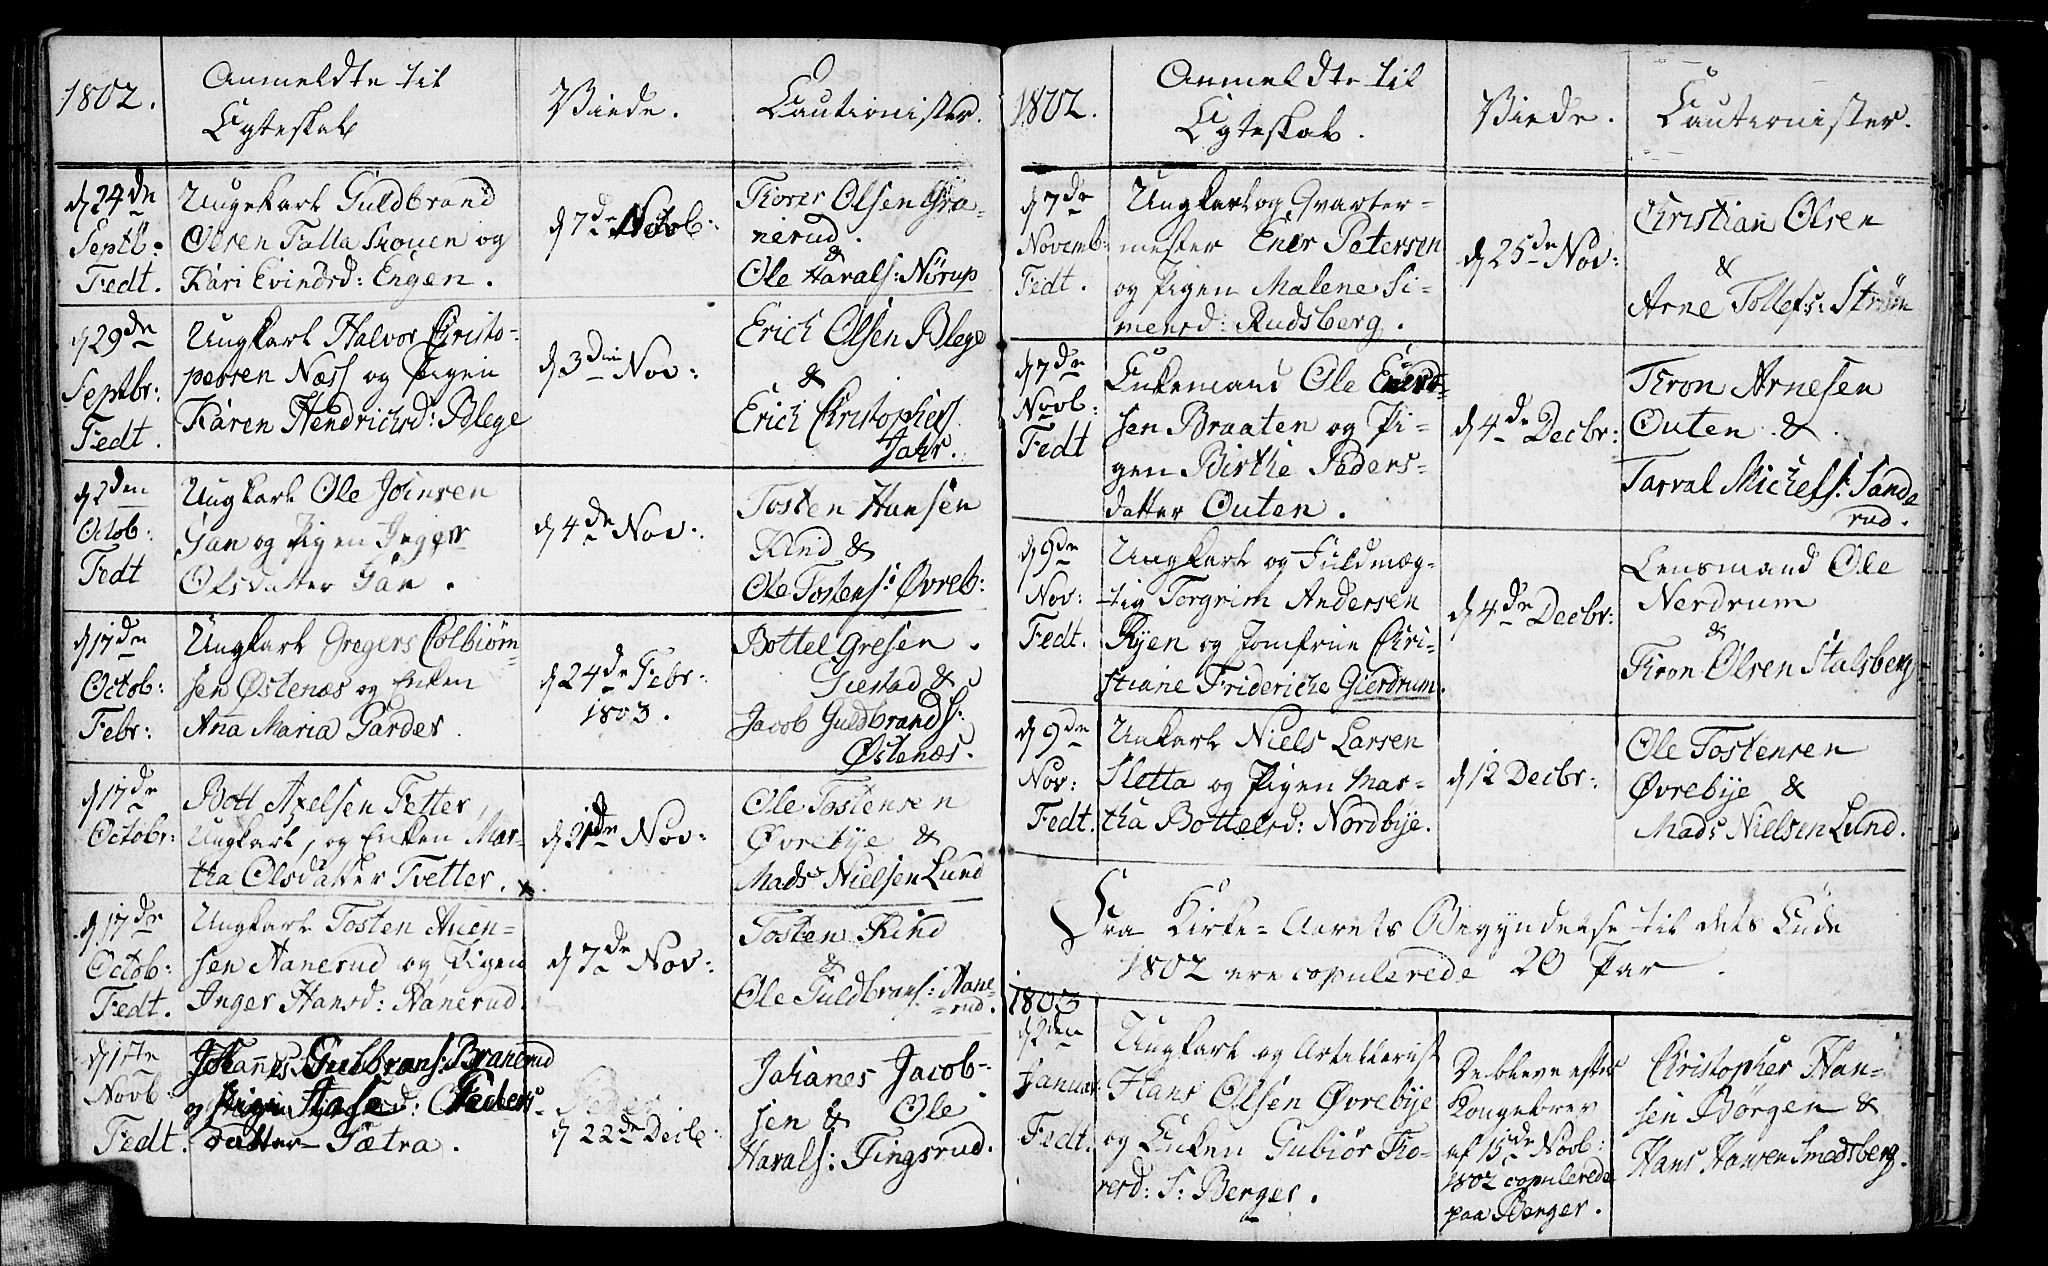 1802.
Anmeldte til
Egteskab
Viede.
Cautionister.
d 24de
Septb:
Fedt.
Ungekarl Guldbrand
Olsen Falla Skouen og
Kari Evindsd: Engen.
d 7de Octob:
Thorer Olsen Gra-
nerud.
&
Ole Haralds: Nörup
d 29de
Septbr:
Fedt.
Ungkarl Halvor Christo-
persen Næss og Pigen
Karen Hendrichsd: Blege
d 3die Nov:
Erich Olsen Blege
&
Erich Christophers
Jahr.
d 2den
Octob:
Fedt
Ungkarl Ole Joensen
Gan og Pigen Inger
Olsdatter Gan.
d 4de Nov:
Tosten Hansen
Kind &
Ole Tostens: Øvreb:
d 17de
Octob:
Febr:
Ungkarl Gregers Colbiørn-
sen Østenæs og Enken
Ana Maria Garder
d 24de Febr:
1803.
Bottel Gresen.
Siestad &
Jacob Guldbrands:
Østenæs.
d 17de
Octobr:
Bott Axelsen Fetter,
Ungkarl, og Enken Mar-
tha Olsdatter Tvetter.
d 21de Nov:
Ole Tostensen
Øvrebye &
Mads Nielsen Lund
d 17de
Octob:
Fedt.
Ungkarl Tosten Auen-
sen Hanerud og Pigen
Inger Hansd: Hanerud.
d 7de Nov:
Tosten Kind
&
Ole Guldbrans: Hane-
rud.
d 1ste
Novb:
Fedt.
Johannes Gulbrans: Branerud
og Pigen
datter Sætra.
d 22de Decb:
Johanes Jacob-
sen & Ole
Harals: Tingsrud.
1802.
Anmeldte til
Egteskab.
Viede.
Cautionister.
d 7de
Novemb:
Fedt.
Ungkarl og Qvarter-
mester Ener Petersen
og Pigen Malene Si-
mensd: Rudsberg.
d 25de Nov:
Christian Olsen
&
Arne Tollefs: Strøm
d 7de
Novb:
Fedt
Enkemand Ole
sen Braaten og Pi-
gen Birthe Peders-
datter Outen.
d 4de Decbr:
Thron Arnesen
Outen &
Tarval Michels: Sande
rud.
d 9de
Nov:
Fedt.
Ungkarl og Fuldmæg-
tig Torgrim Andersen
Ryen og Jomfrue Chri-
stiane Frideriche Gierdrum.
d 4de Decbr:
Lensmand Ole
Nerdrum
&
Thron Olsen Stalsberg
d 9de
Nov:
Fedt.
Unkarl Niels Larsen
Sletta og Pigen Mar-
tha Bottelsd: Nordbye.
d 12 Decbr:
Ole Tostensen
Øvrebye &
Mads Nielsen Lund.
Fra Kirke-Aarets Begyndelse til dets Ende
1802 ere copulerede 20 Par.
1803
d 2den
Januar
Fedt.
Ungkarl og Artillerist
Hans Olsen Øvrebye
og Enken Gubiør Tho-
rersd: S: Berger.
De bleve efter
Kongebrev
af 15de Novb:
1802 copulerede
paa Berger.
Christopher Han-
sen Börgen &
Hans Hansen Smedsberg.